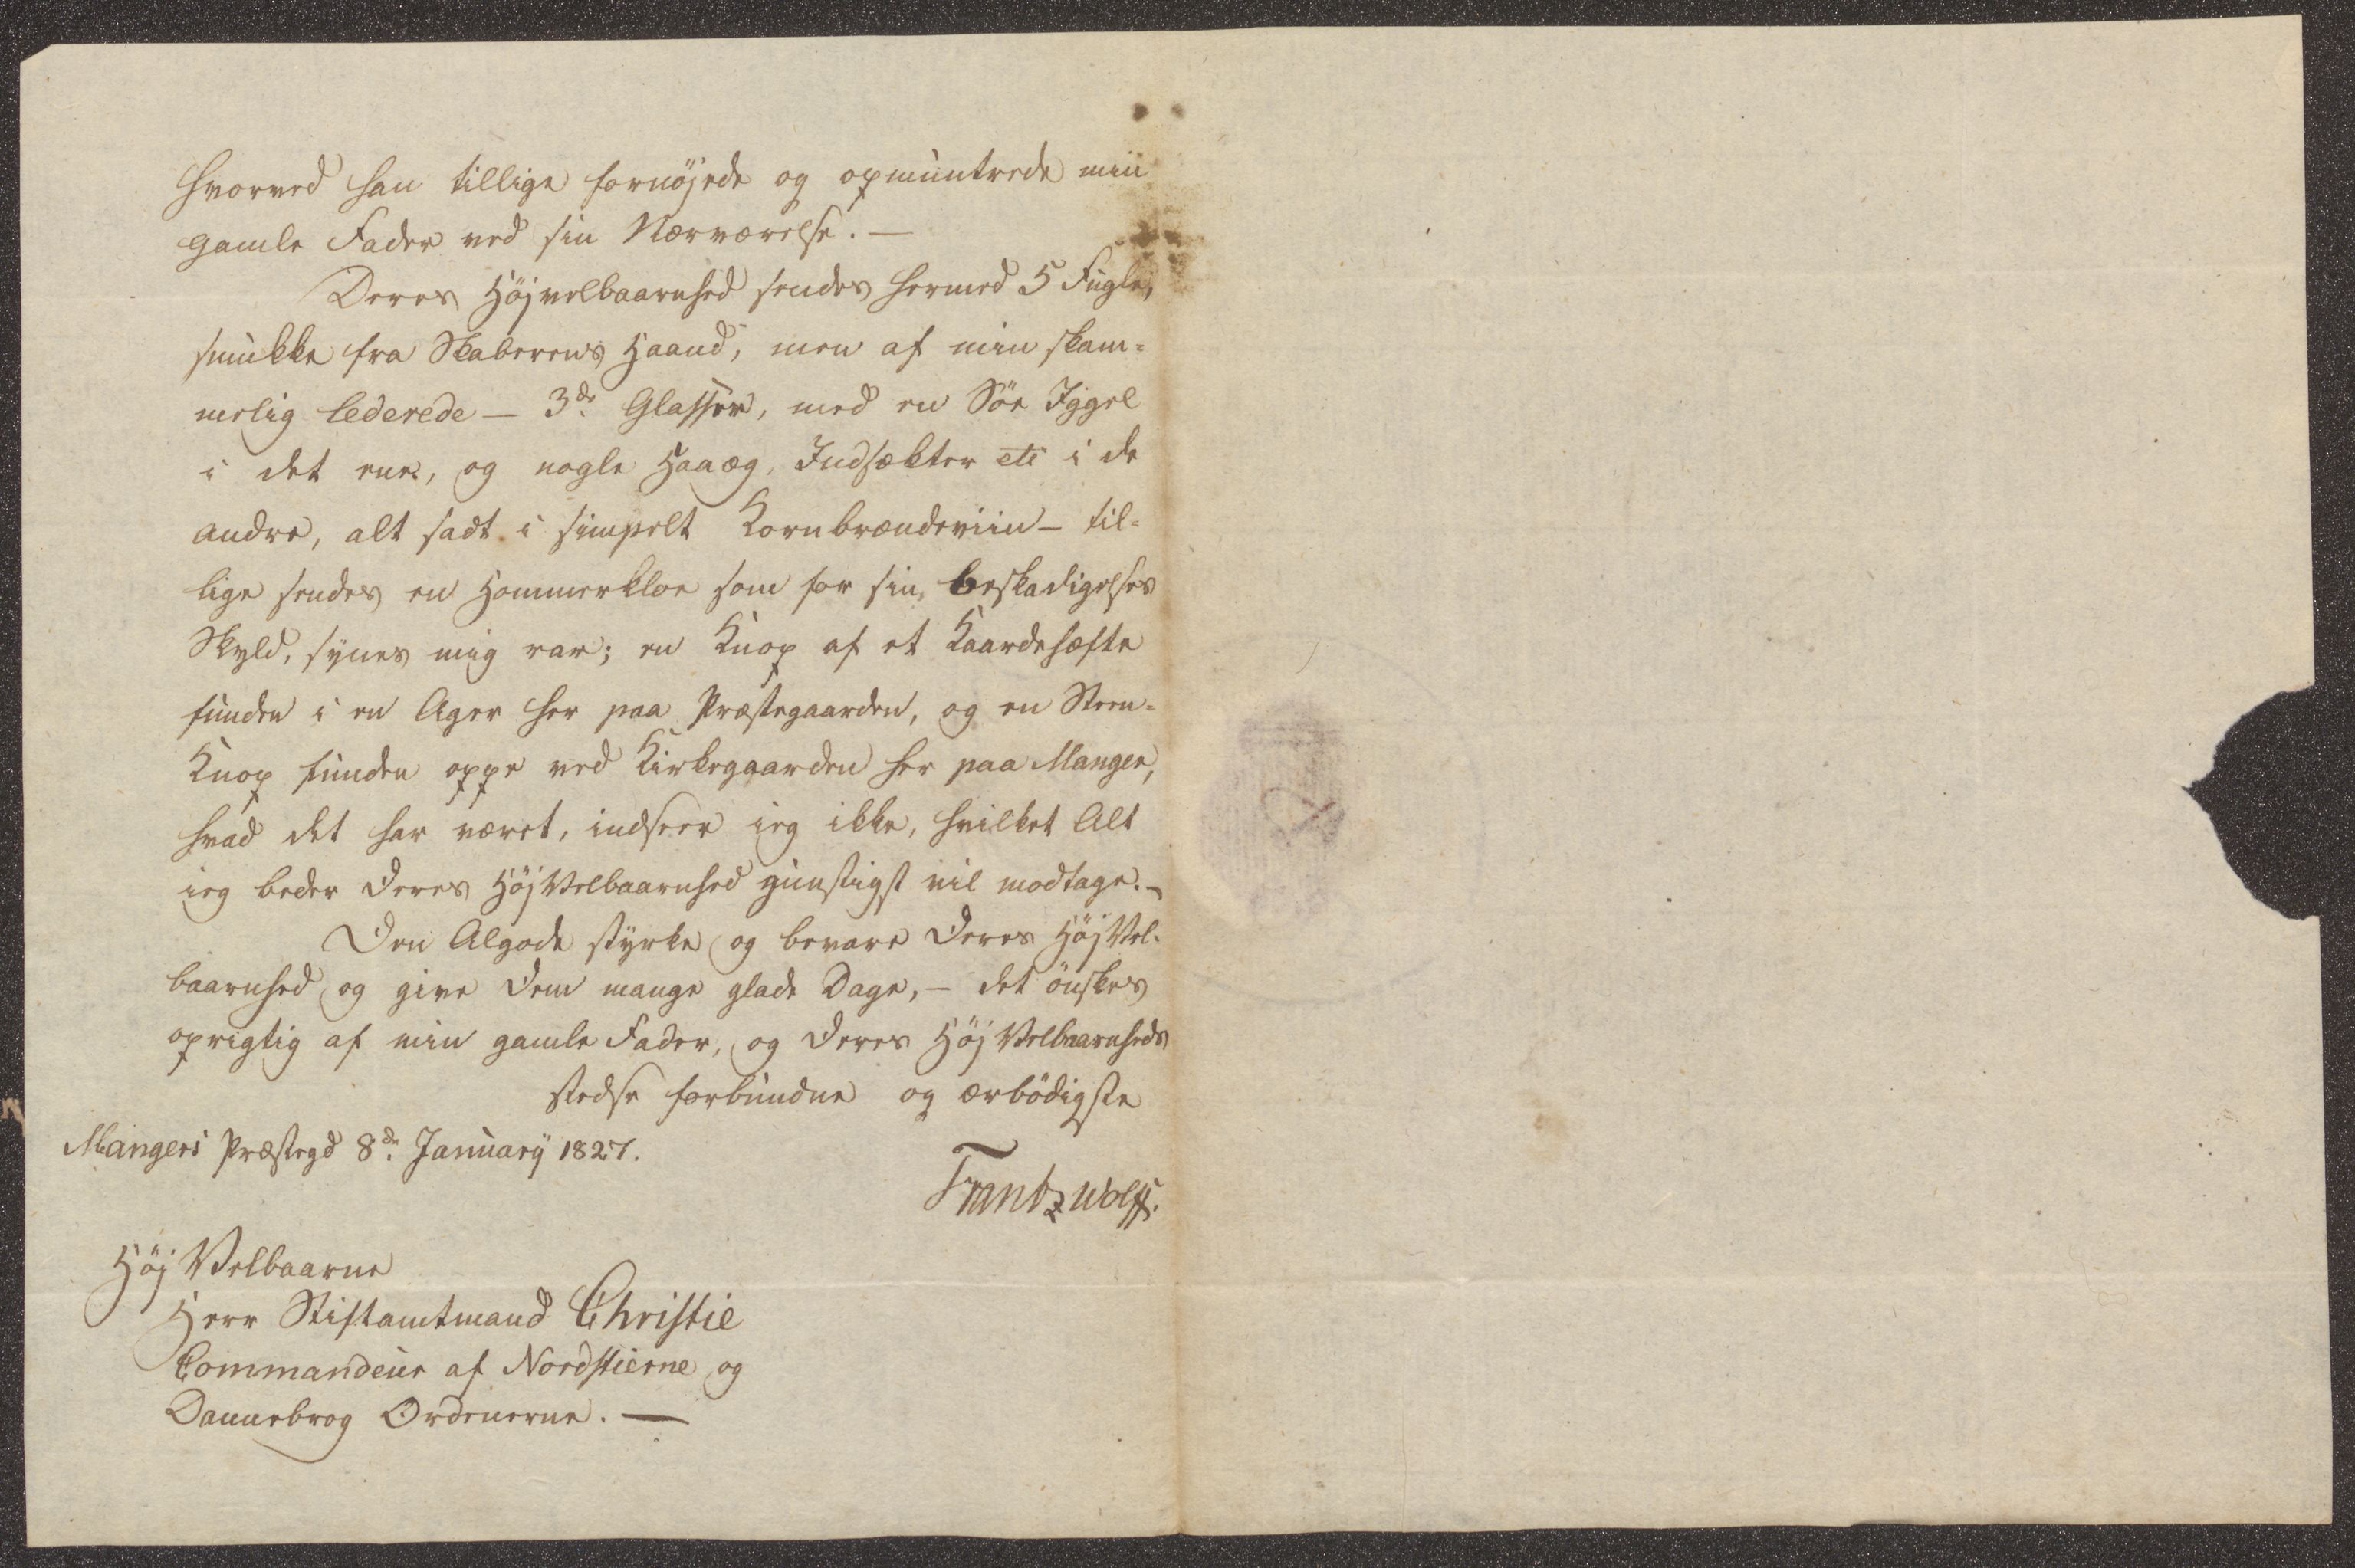 hvorved han tillige fornöjede og opmuntrede min
gamle Fader ved sin Nærværelse. —
Deres Höjvelbaarnhed sendes hermed 5 Fugle,
smukke fra Skaberens Haand, men af min skam=
melig lederede — 3de Glasser, med en Söe Iggel
i det ene, og nogle Haaæg, Indsækter etc i de
andre, alt sadt i simpelt Kornbrændeviin — til=
lige sendes en Hommerkloe som for sin beskadigelses
Skyld, synes mig rar; en Knop af et Kaardehæfte
funden i en Ager her paa Præstegaarden, og en Steen=
Knop funden oppe ved Kirkegaarden her paa Manger,
hvad det har været, indseer ieg ikke, hvilket Alt
ieg beder Deres HöjVelbaarnhed gunstigst vil modtage. —
Den Algode styrke og bevare Deres HöjVel=
baarnhed og give Dem mange glade Dage, — det önskes
oprigtig af min gamle Fader, og Deres HöjVelbaarnheds
stedse forbundne og ærbödigste
Mangers Præstegd 8de Januarÿ 1827.
Frantz Wolff.
Höj Velbaarne
Herr Stiftamtmand Christie
Commandeur af Nordstierne og
Dannebrog Ordenerne. —